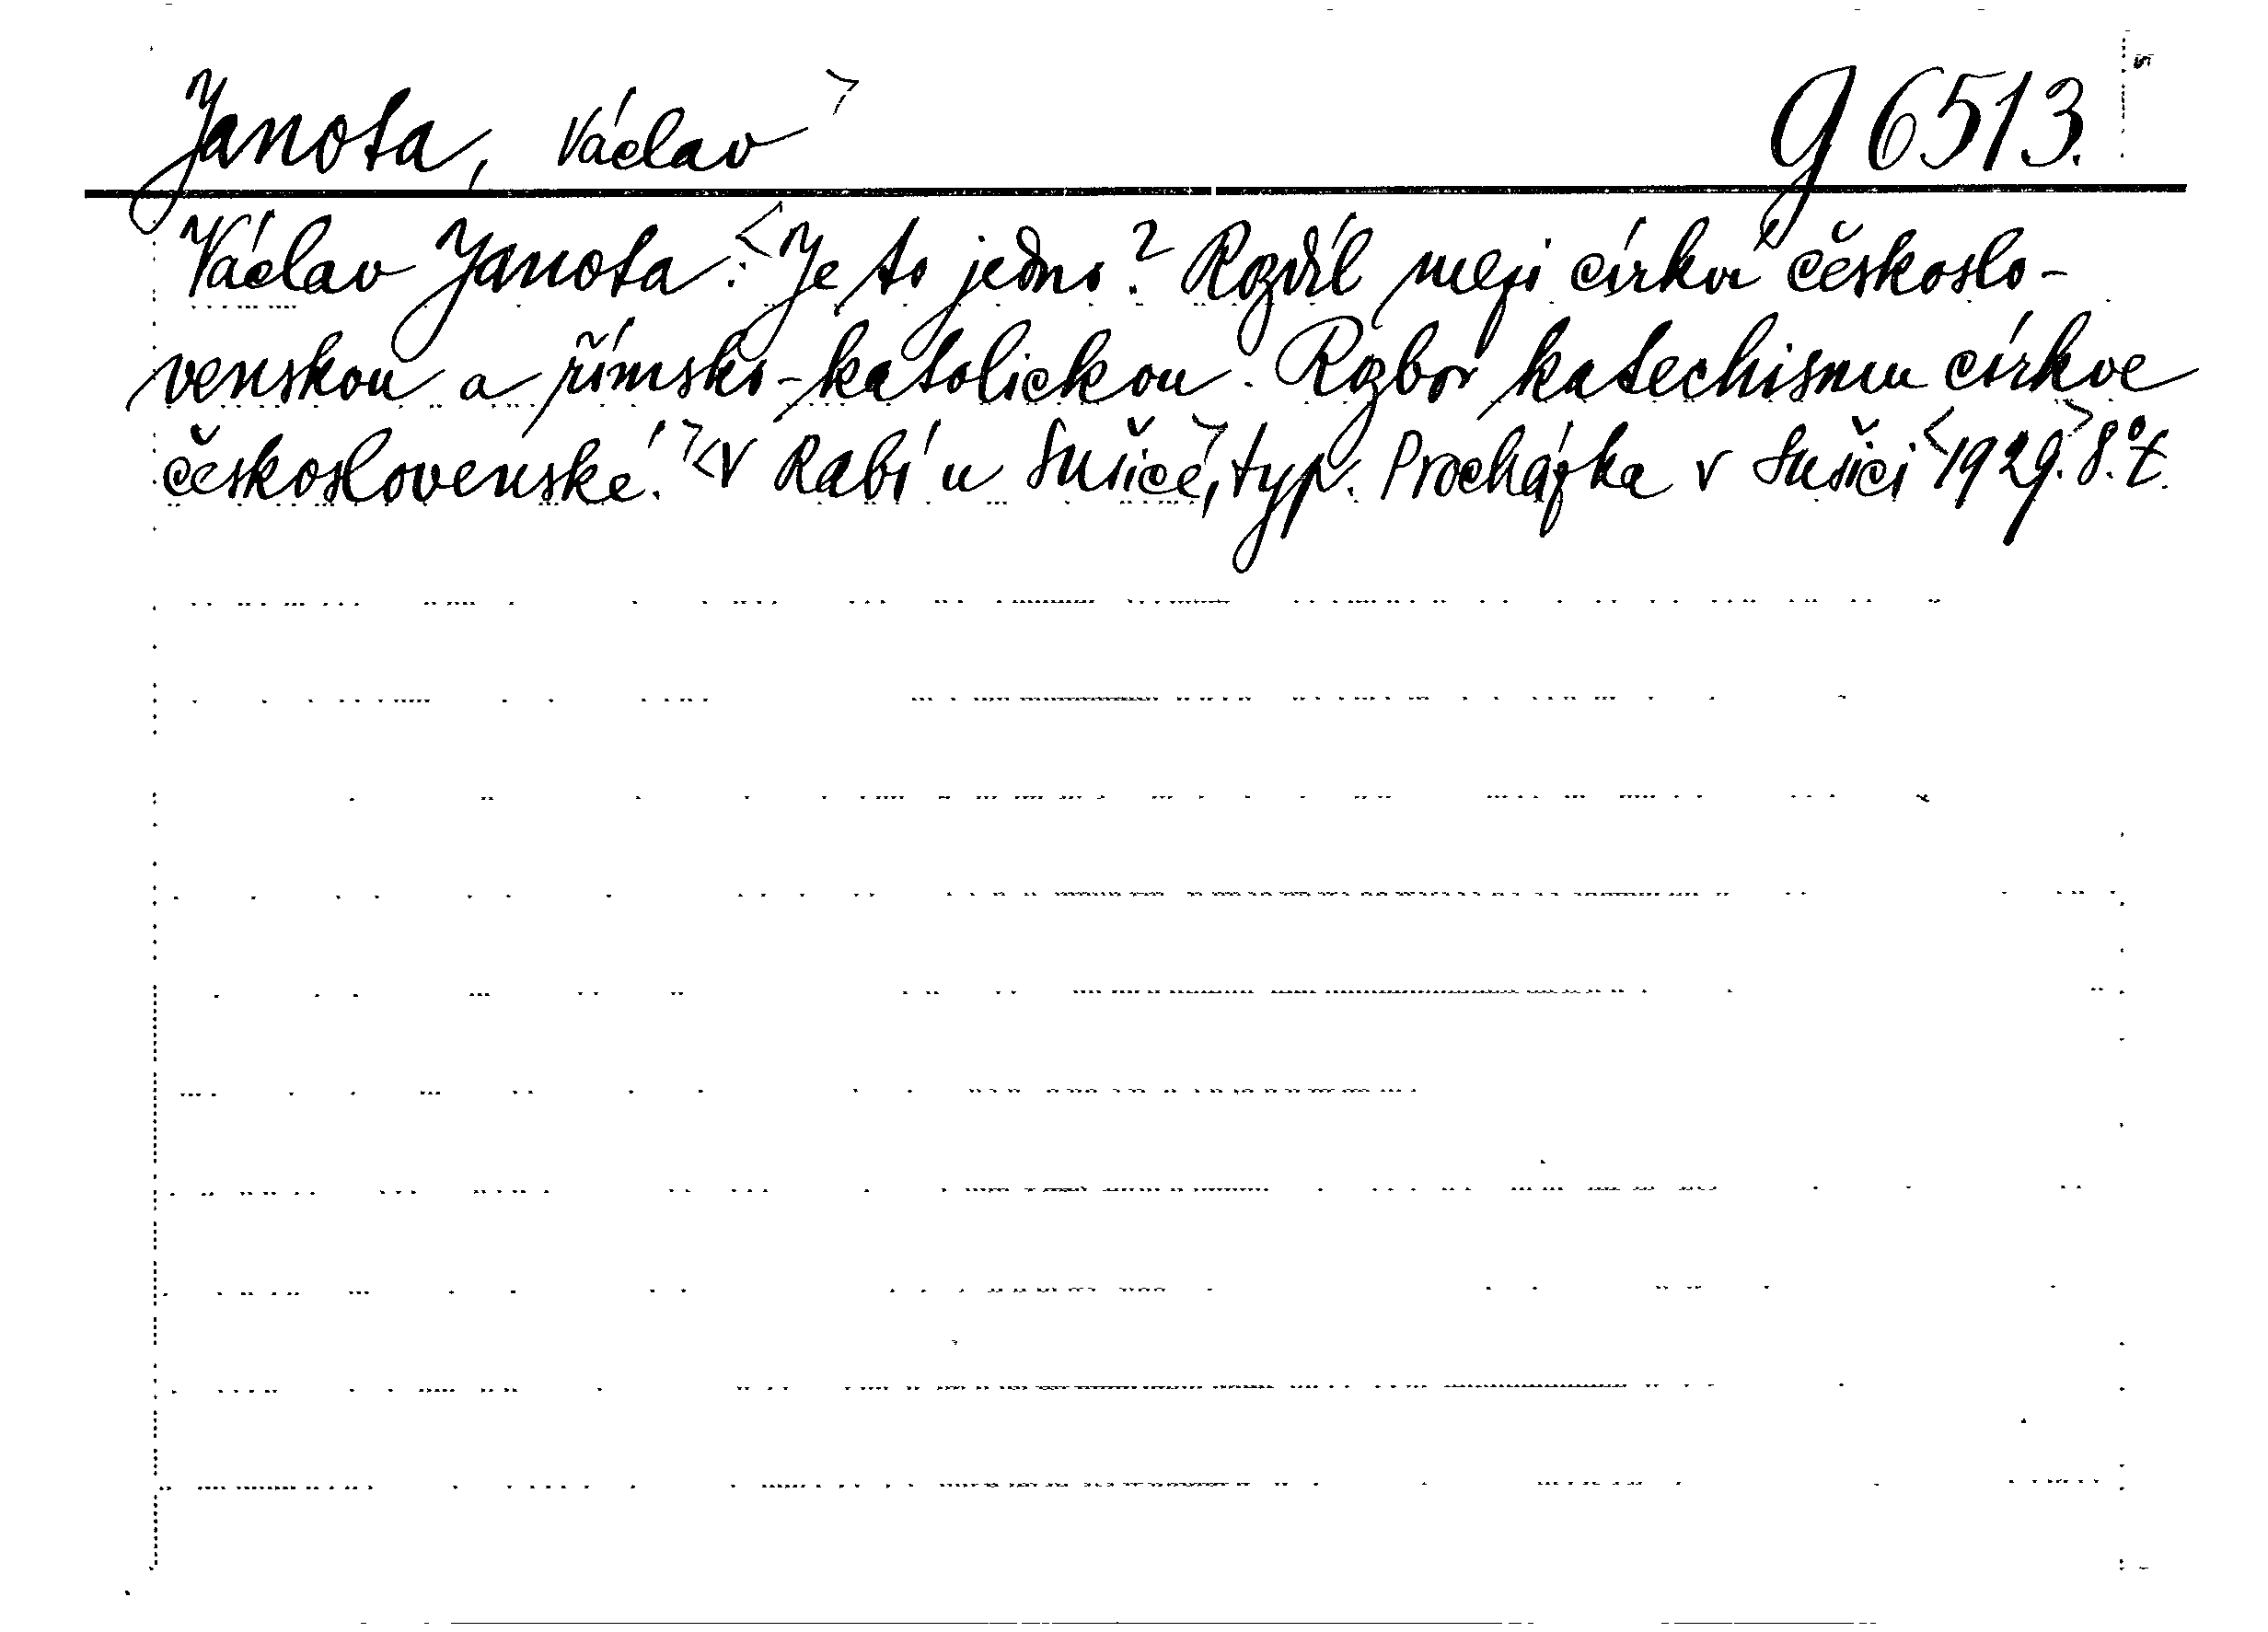 Janota, Václav g 6513.
Václav Janota: Je to jedno? Rozdíl mezi církví českoslo-
venskou a římsko-katolickou. Rozbor katechismu církve
československé. V Rabí u Sušice, typ. Procházka v Sušici 1929. 8.°